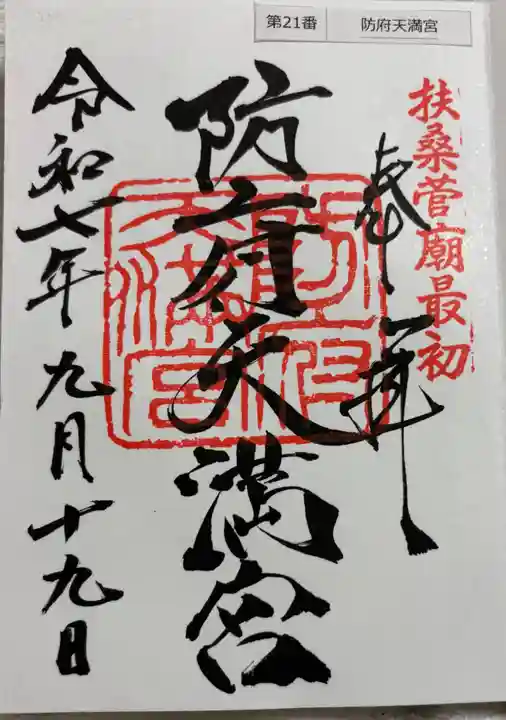 第21番 防府天満宮
扶桑菅廟最初
奉拝
防府天満宮
防府天満宮
令和七年九月十九日